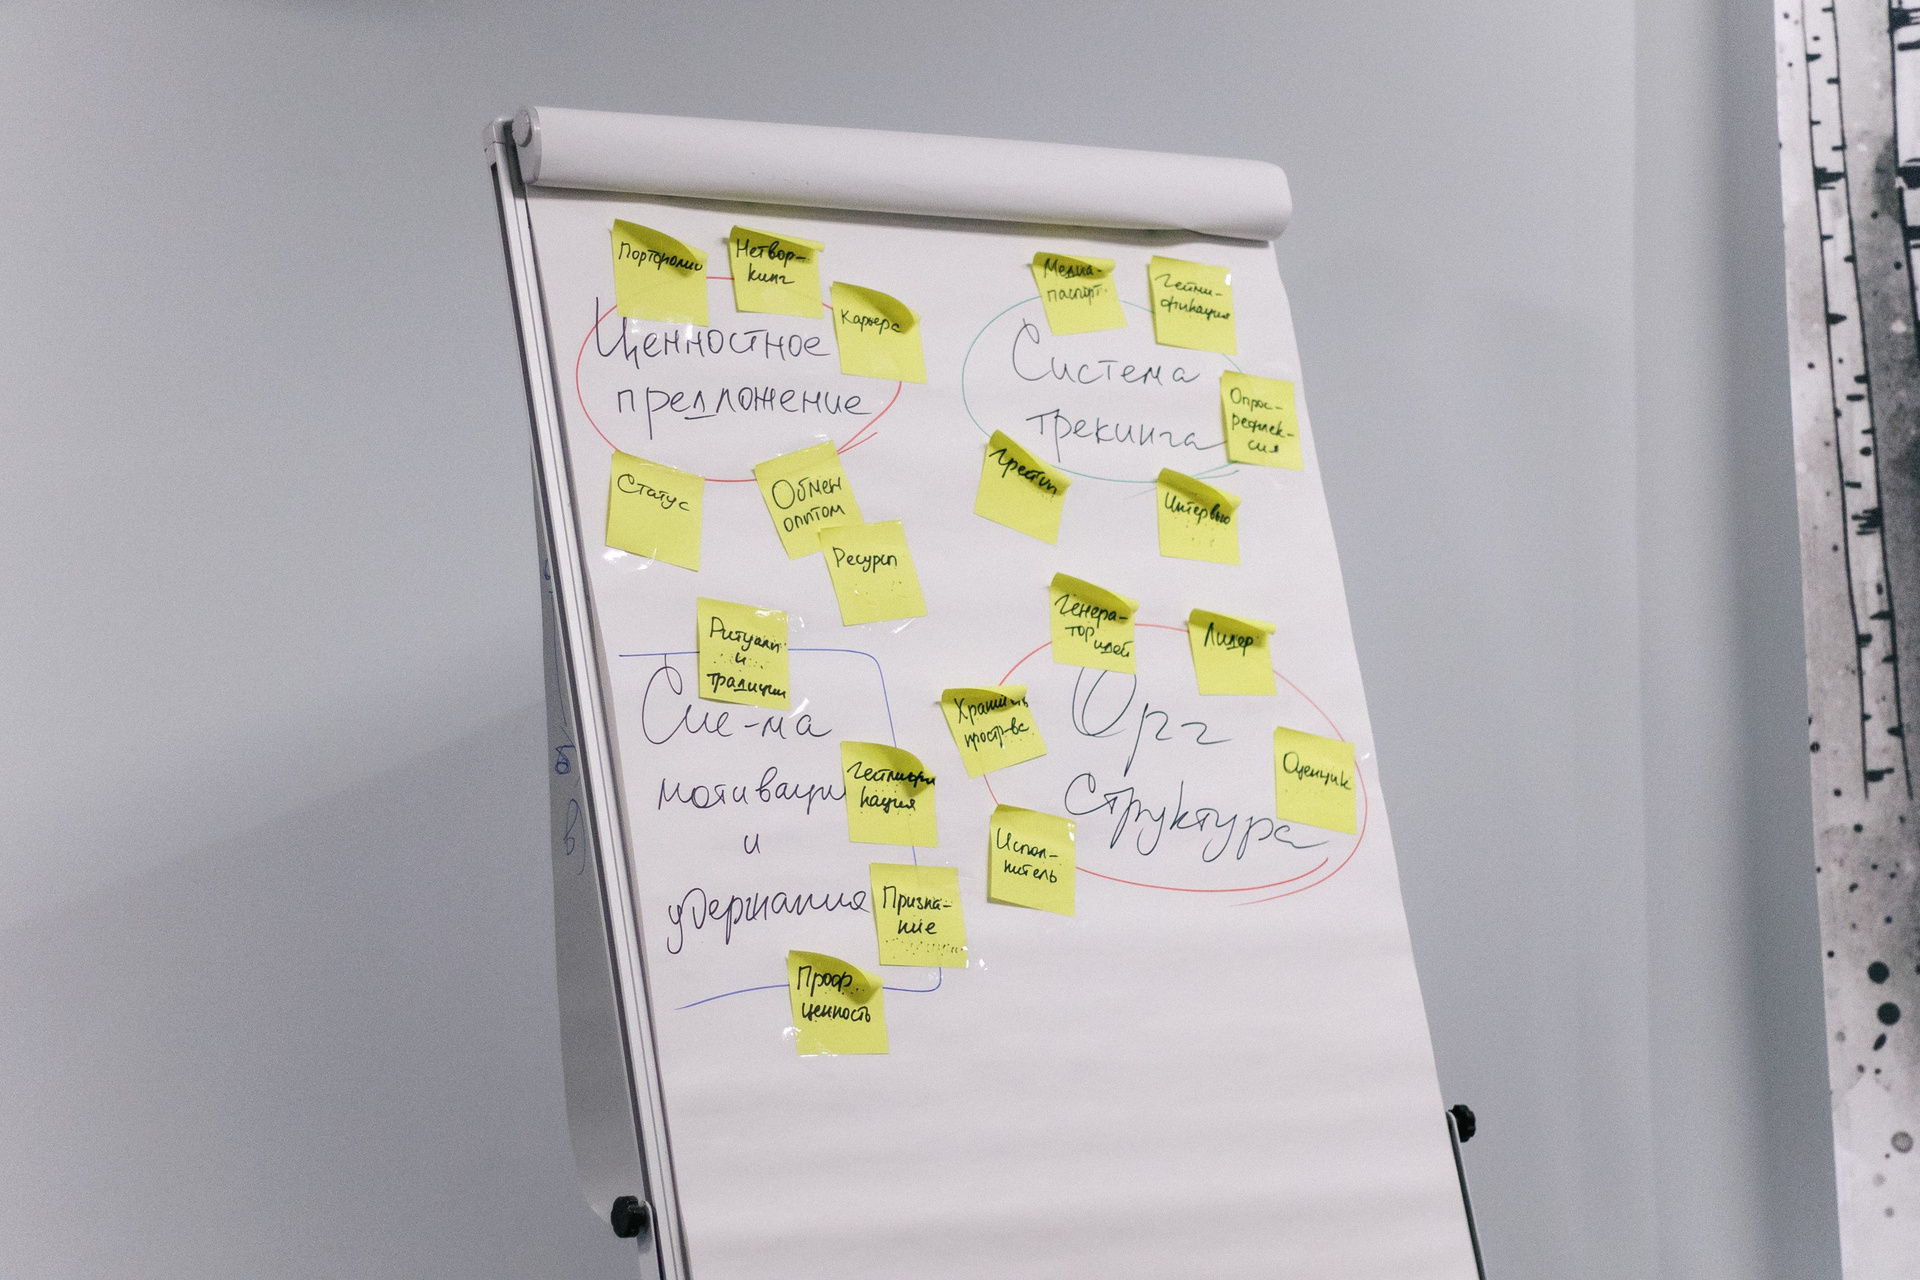 Портфолио
Нетвор-
кинг
Карьера
Ценностное
предложение
Статус
Обмен
опытом
Ресурсы
Медиа-
паспорт
Гейми-
фикация
Система
трекинга
Опрос-
рефлек-
сия
Интервью
Ритуалы
и
традиции
Сис-ма
мотивации
и
удержания
Геймифи
кация
Призна-
ние
Проф.
ценность
Генера-
тор идей
Лидер
Хранит
простр-ва
Орг
структура
Оценщик
Испол-
нитель